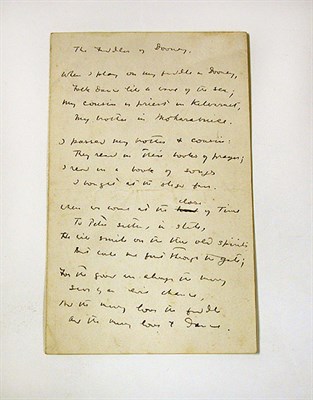 The Fiddler of Dooney.
When I play on my fiddle in Dooney,
Folk dance like a wave of the sea;
My cousin is priest in Kilvarnet,
My brother in Moharabuiee.
I passed my brother & cousin:
They read in their books of prayer;
I read in a book of songs
I bought at the Sligo fair.
When we come at the close of Time
To Peter sitting in state,
He will smile on the three old spirits
But call me first through the gate;
For the good are always the merry
Save by an evil chance,
And the merry love the fiddle
And the merry love to dance.